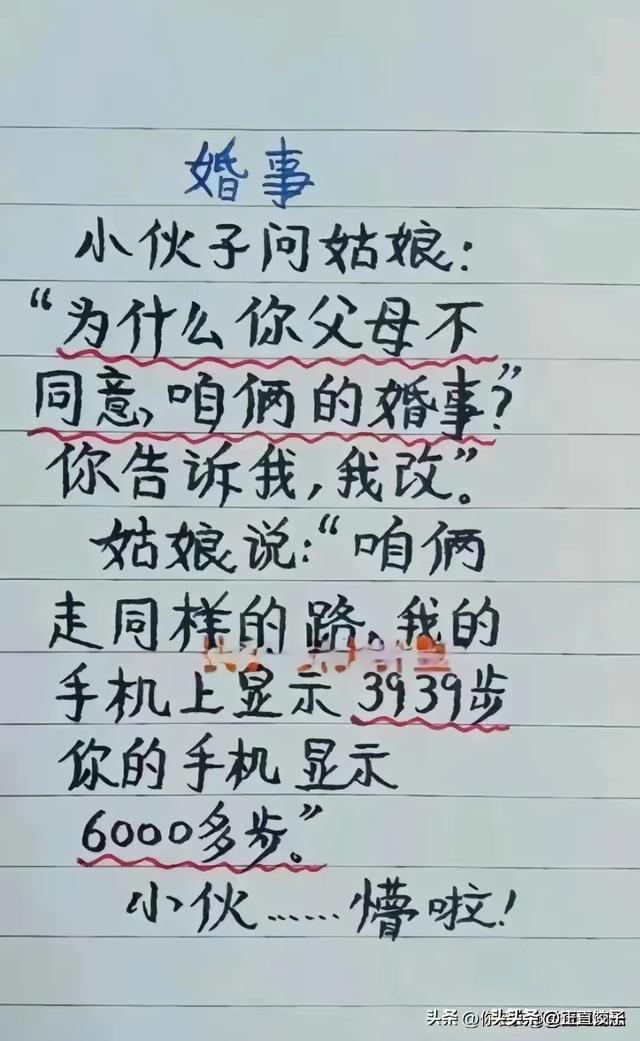 婚事
小伙子问姑娘：
“为什么你父母不
同意,咱俩的婚事?”
你告诉我,我改”。
姑娘说:“咱俩
走同样的路,我的
手机上显示3939步
你的手机显示
6000多步。”
小伙……懵啦!
头条 @正直饺子